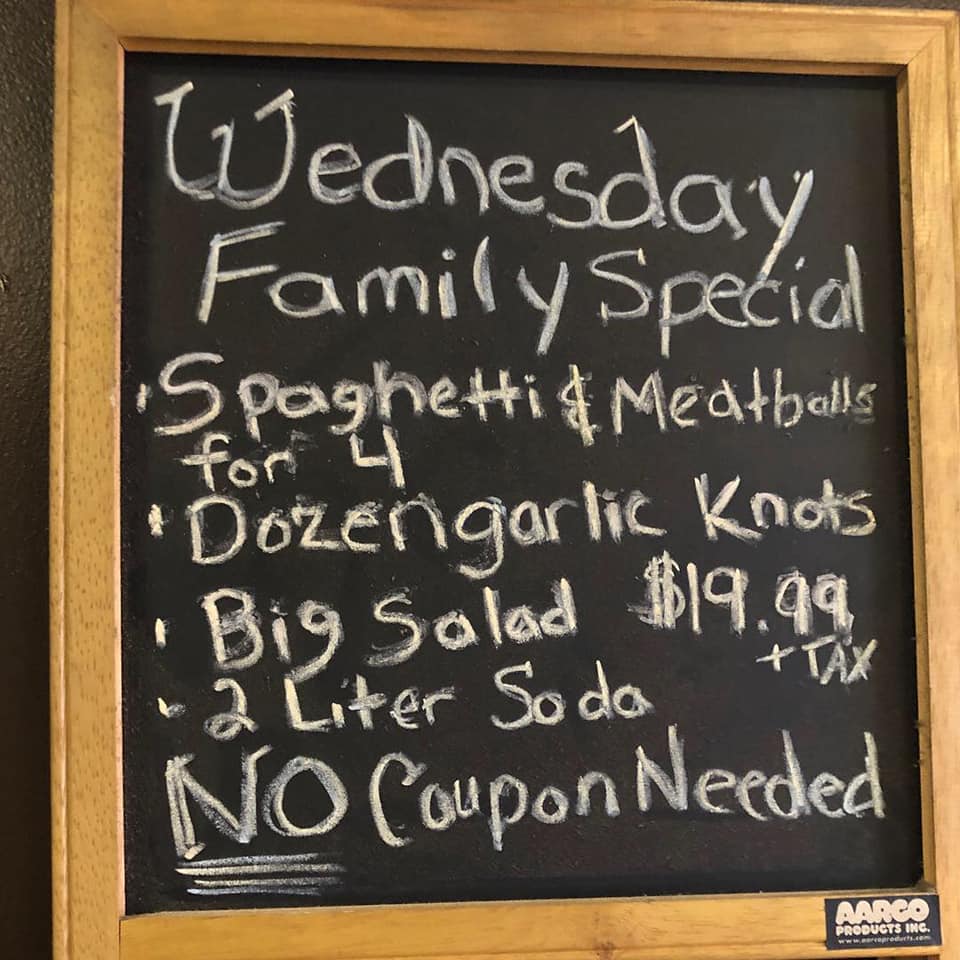 Wednesday
Family Special
· Spaghetti & Meatballs
for 4
· Dozen garlic Knots
· Big Salad $19.99
+ TAX
· 2 Liter Soda
NO Coupon Needed
AARCO
PRODUCTS INC.
www.aarcoproducts.com